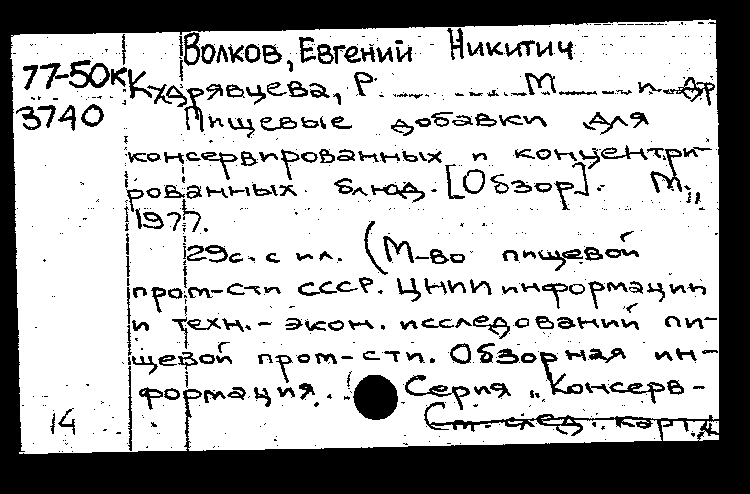 Волков, Евгений Никитич
77-50кк
Кудрявцева, Р. М. и др
3740
Пищевые добавки для
консервированных и концентри-
рованных блюд. [Обзор]. М.,
1977.
29с. с ил. (М-во пищевой
пром-сти СССР. ЦНИИ информации
и техн.-экон. исследований пи-
щевой пром-сти. Обзорная ин-
формация. Серия „Консерв-
14 См. след. карт.